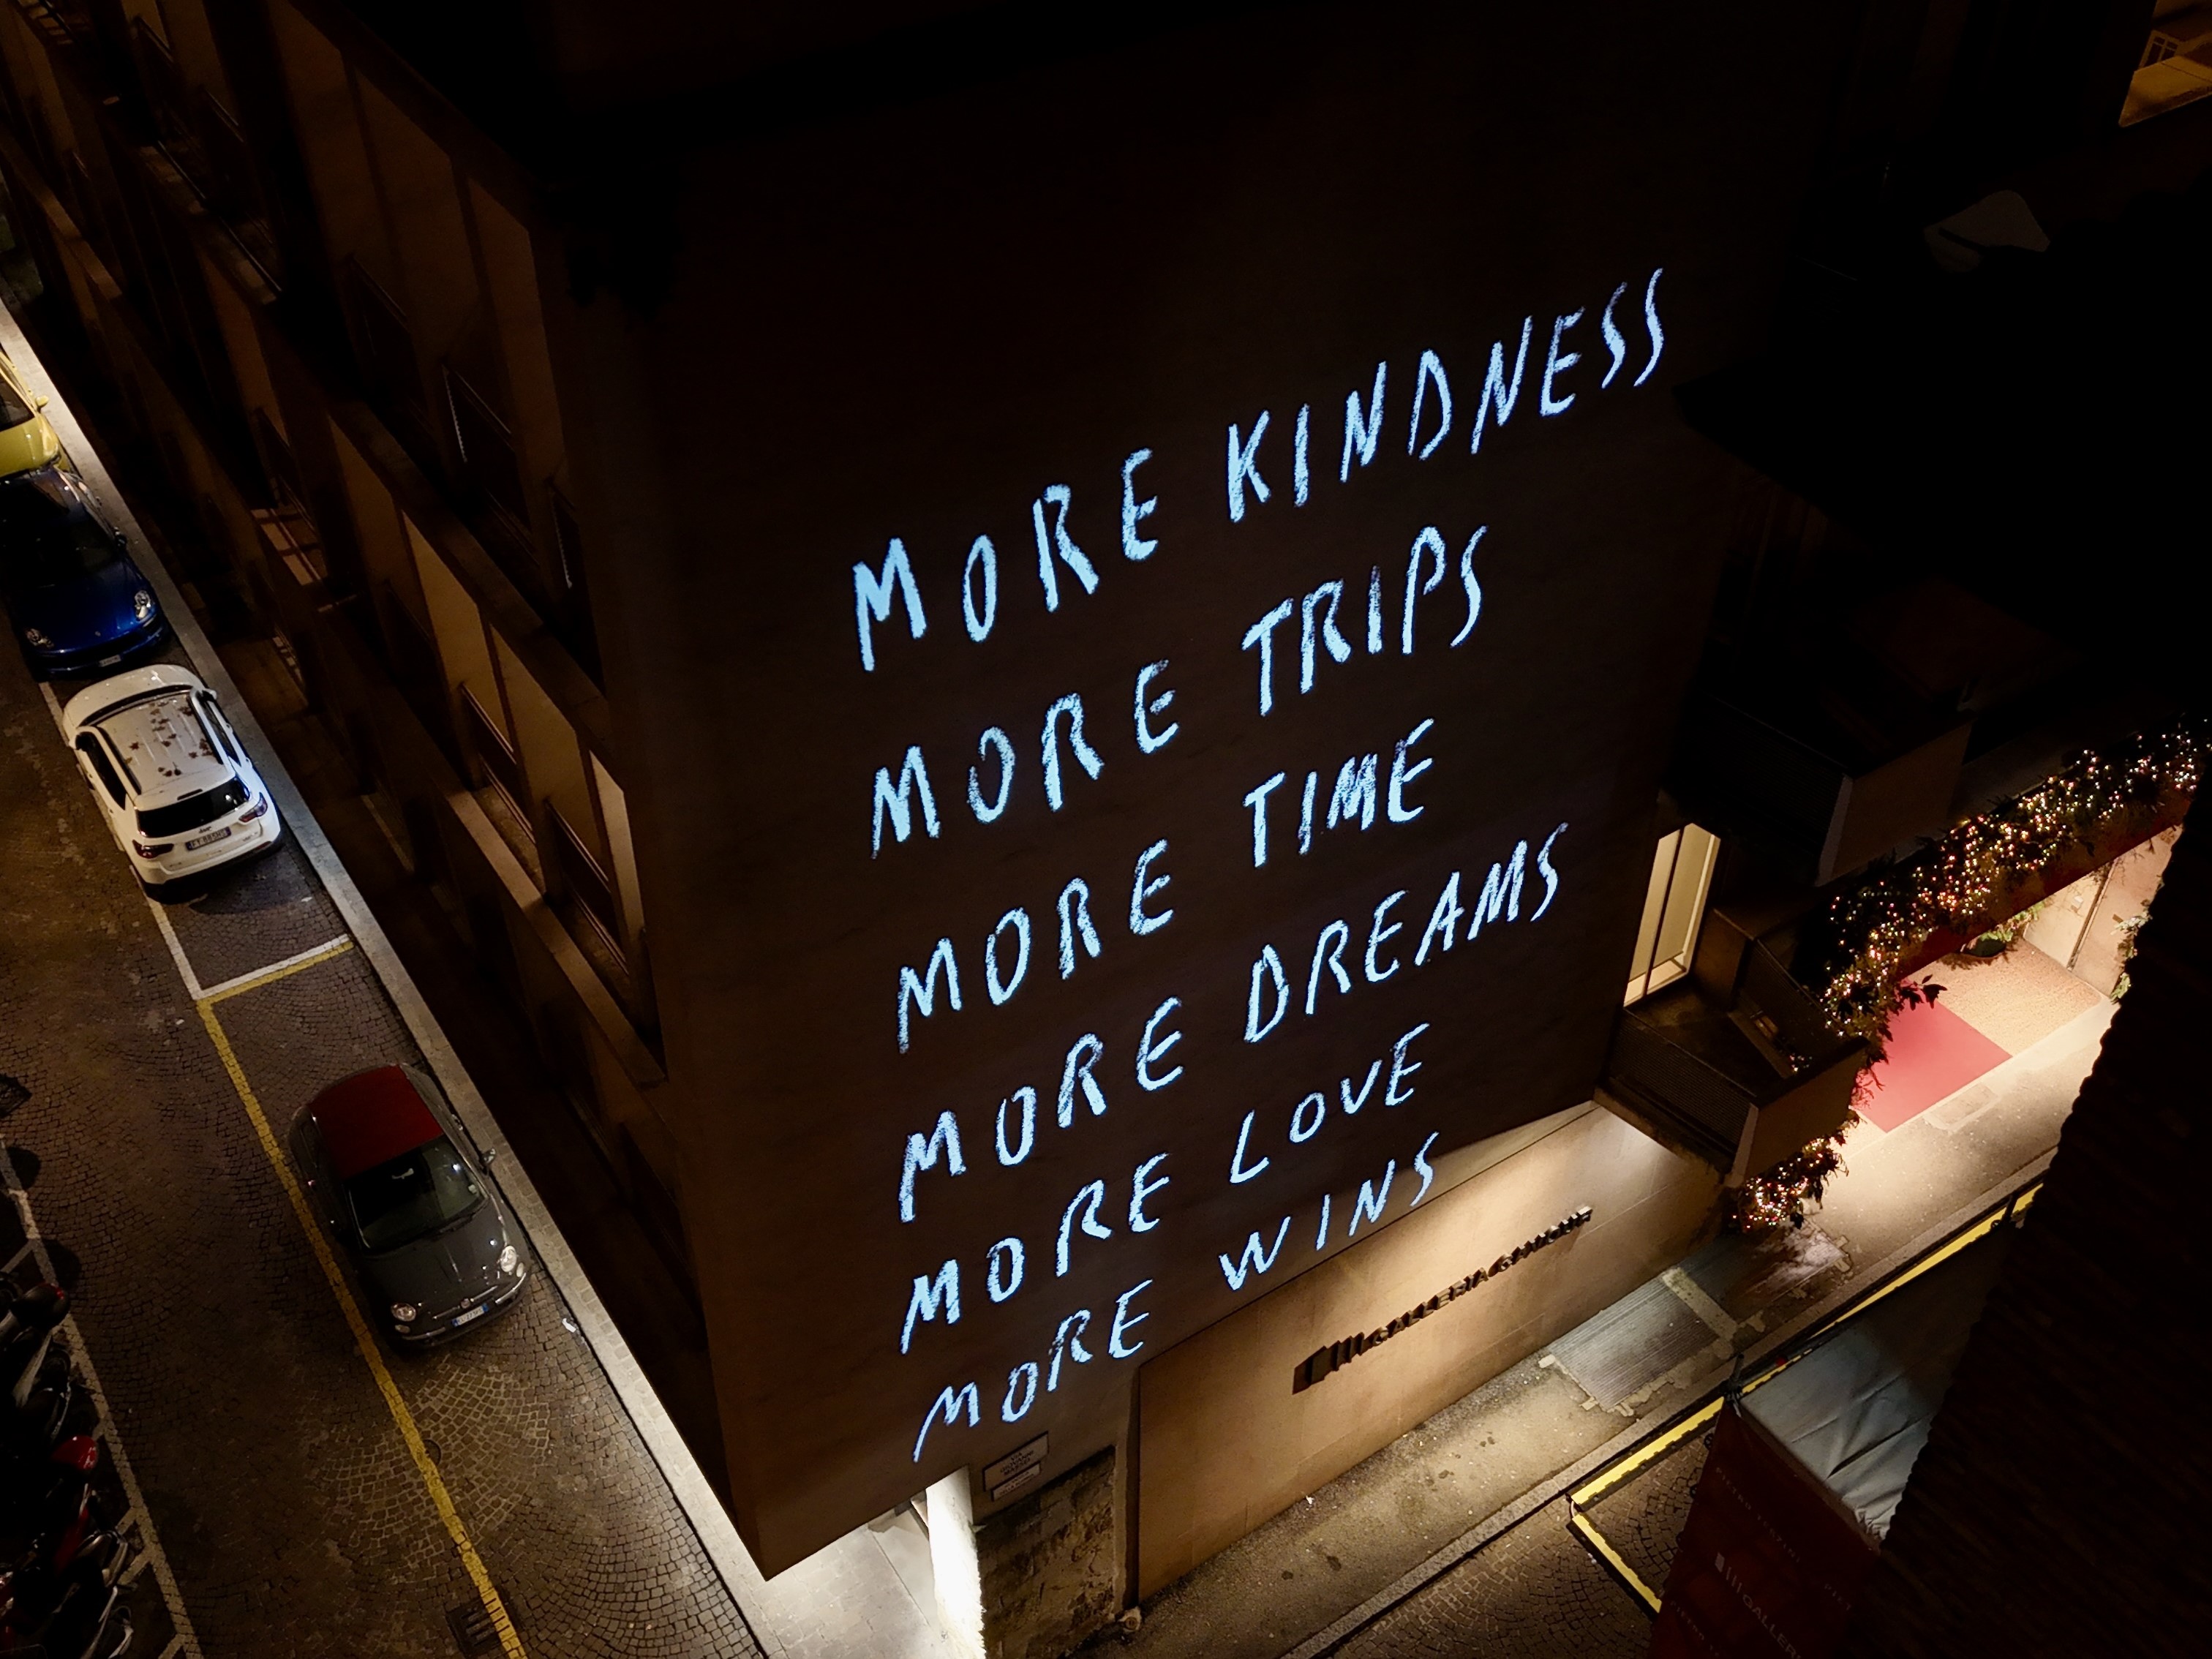 MORE KINDNESS
MORE TRIPS
MORE TIME
MORE DREAMS
MORE LOVE
MORE WINS
GALLERIA